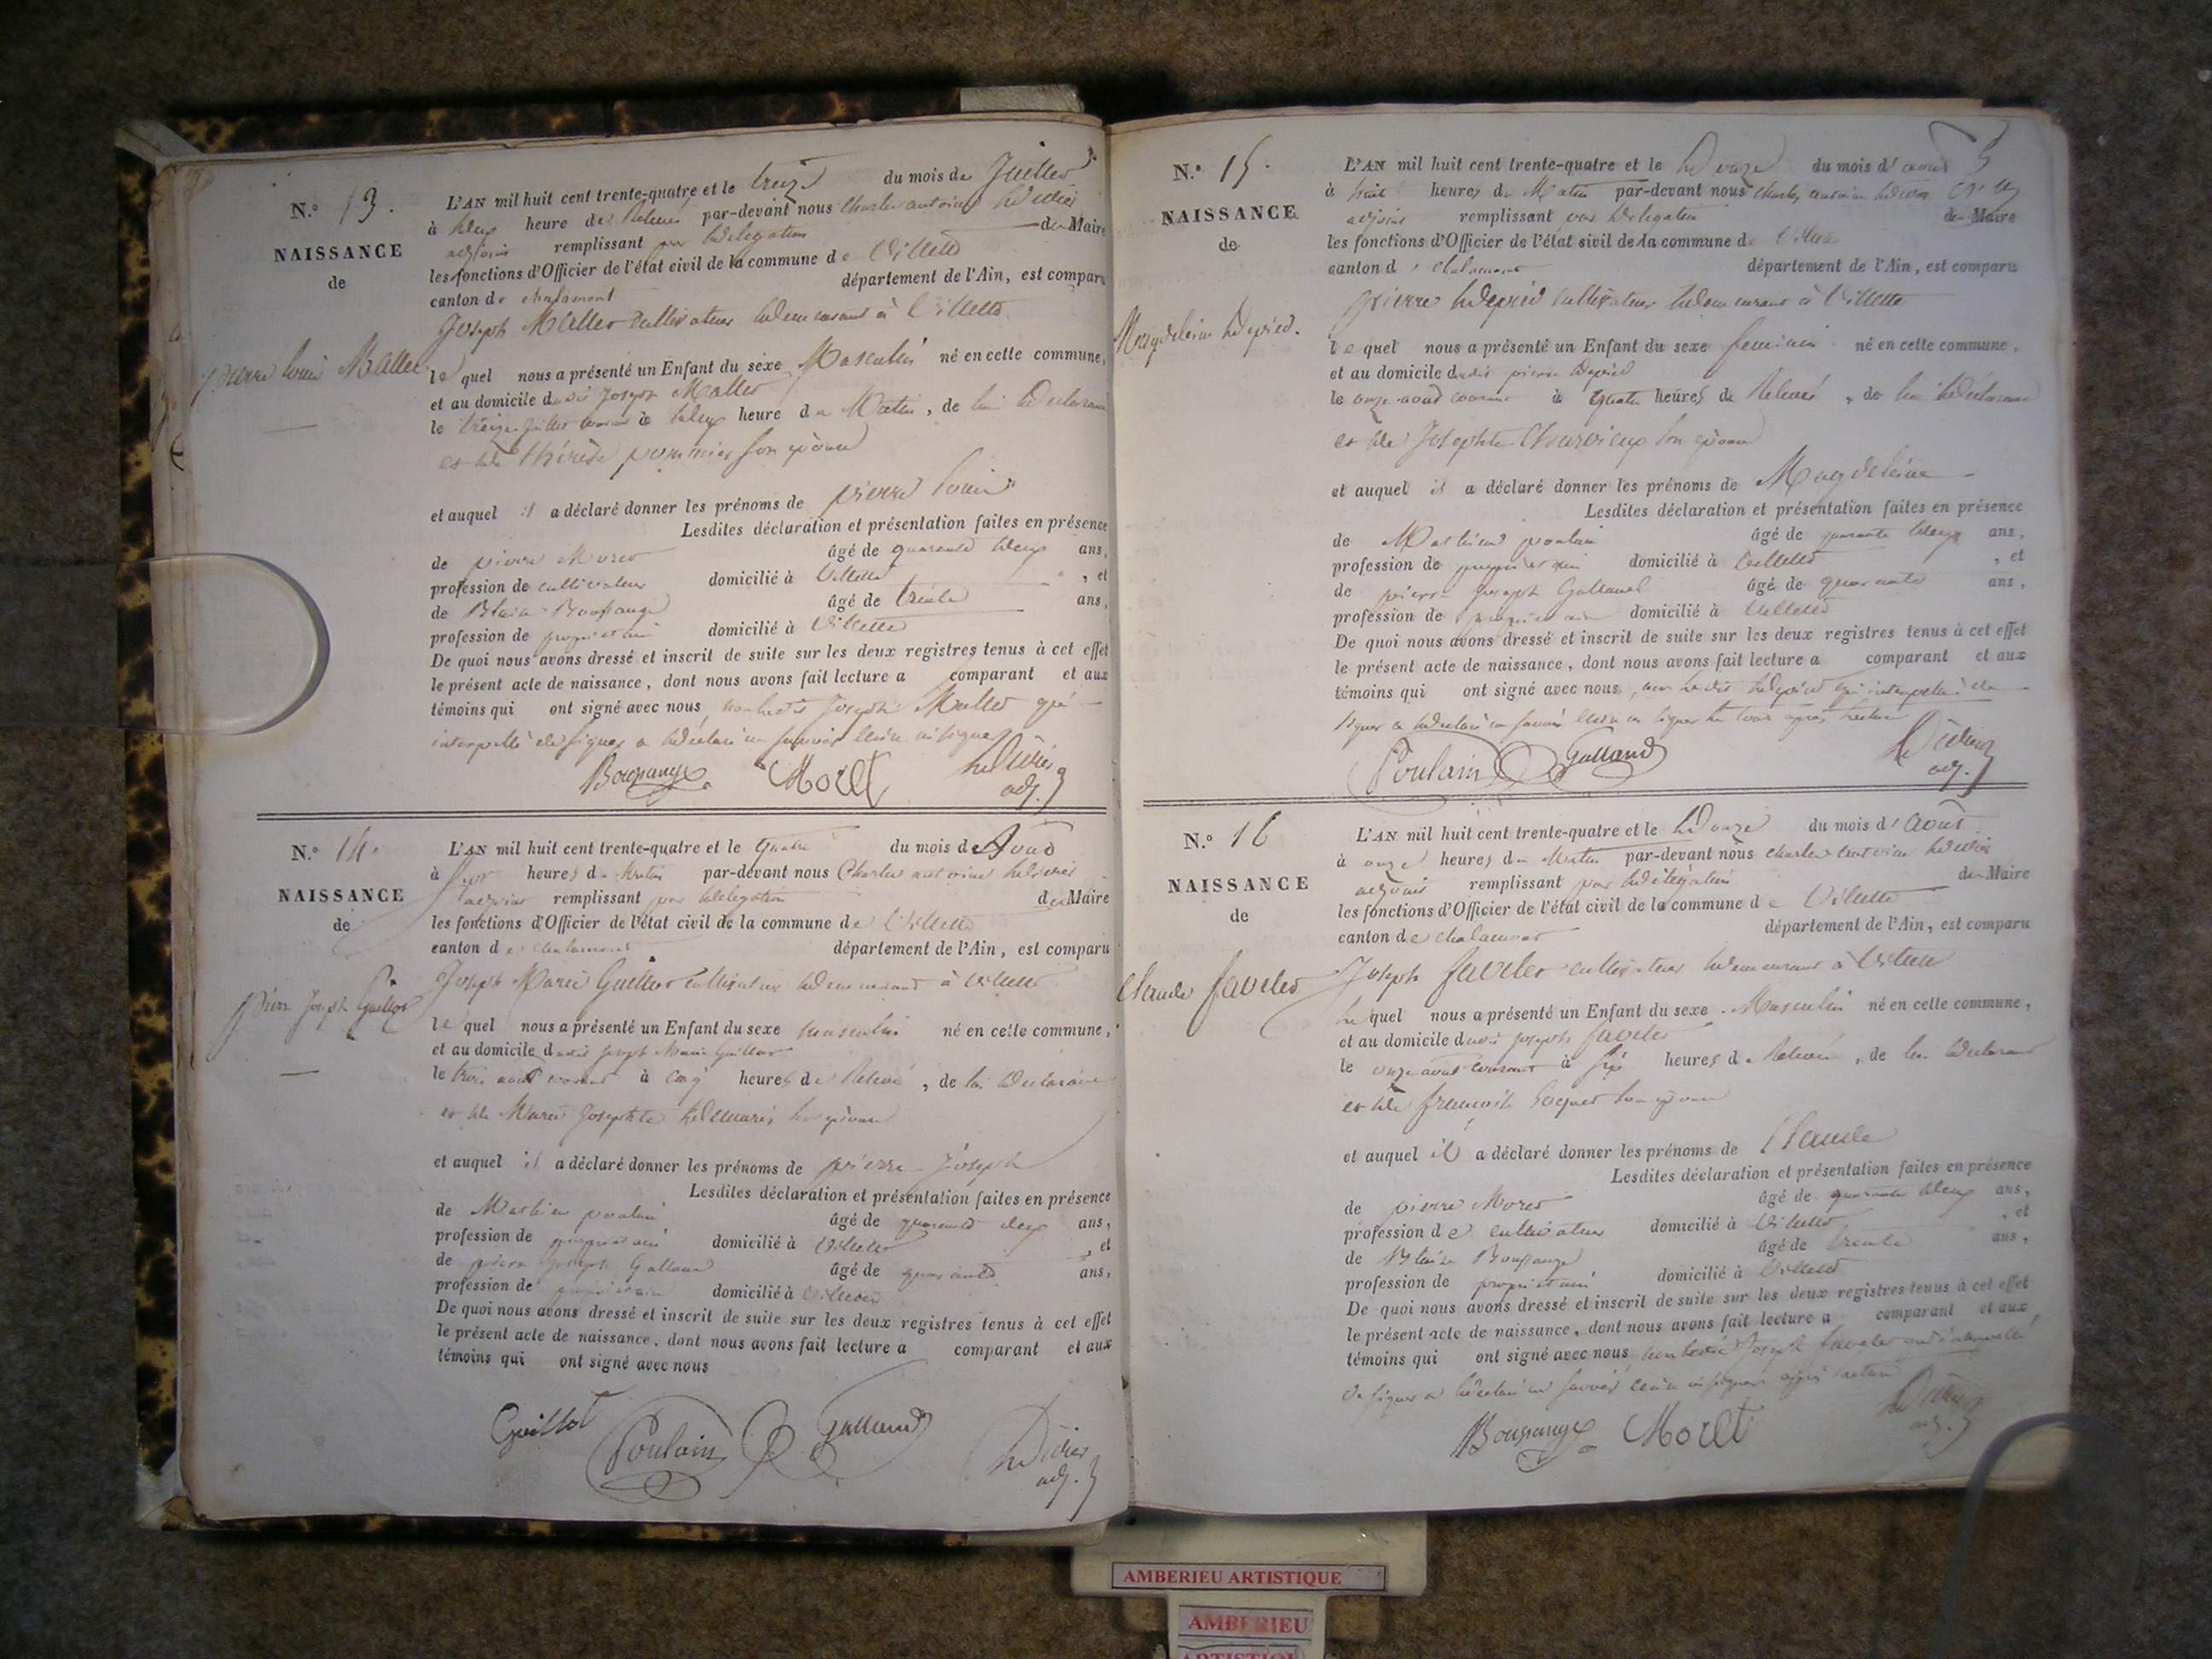 N.° 13.
NAISSANCE
de
pierre louis Mallet
L'AN mil huit cent trente-quatre et le treize du mois de Juillet
à deux heure de Relevé par-devant nous Charles antoine Dedivier
adjoint remplissant par délégation du Maire
les fonctions d'Officier de l'état civil de la commune de Villette
canton de chalamont département de l'Ain, est comparu
Joseph Mallet cultivateur demeurant à Villette
le quel nous a présenté un Enfant du sexe Masculin né en cette commune,
et au domicile dudit Joseph Mallet
le treize juillet courant à deux heure du Matin, de lui déclarant
et de thérèse pommier son épouse
et auquel il a déclaré donner les prénoms de pierre louis
Lesdites déclaration et présentation faites en présence
de pierre Moret âgé de quarante deux ans,
profession de cultivateur domicilié à Villette, et
de Blaise Bouvrange âgé de trente ans,
profession de propriétaire domicilié à Villette
De quoi nous avons dressé et inscrit de suite sur les deux registres tenus à cet effet
le présent acte de naissance, dont nous avons fait lecture a comparant et aux
témoins qui ont signé avec nous, non ledit Joseph Mallet qui
interpellé de signer a déclaré ne savoir
Moret
adj.
N.° 14.
NAISSANCE
de
pierre Joseph Guillot
L'AN mil huit cent trente-quatre et le quatre du mois d'Aout
à heures du Matin par-devant nous Charles antoine
adjoint remplissant par délégation du Maire
les fonctions d'Officier de l'état civil de la commune de Villette
canton de chalamont département de l'Ain, est comparu
Joseph Marie Guillot cultivateur demeurant à Villette
le quel nous a présenté un Enfant du sexe masculin né en cette commune,
et au domicile dudit Joseph Marie Guillot
le trois aout courant à cinq heures de Relevé, de lui déclarant
et de Marie Josephte son épouse
et auquel il a déclaré donner les prénoms de pierre Joseph
Lesdites déclaration et présentation faites en présence
de Mathieu poulain âgé de quarante deux ans,
profession de propriétaire domicilié à Villette, et
de pierre Joseph Galland âgé de quarante ans,
profession de propriétaire domicilié à Villette
De quoi nous avons dressé et inscrit de suite sur les deux registres tenus à cet effet
le présent acte de naissance, dont nous avons fait lecture a comparant et aux
témoins qui ont signé avec nous
Guillot Poulain Galland
adj.
N.° 15.
NAISSANCE
de
Magdeleine
L'AN mil huit cent trente-quatre et le douze du mois d'aout
à huit heures du Matin par-devant nous Charles antoine
adjoint remplissant par délégation du Maire
les fonctions d'Officier de l'état civil de la commune de Villette
canton de Chalamont département de l'Ain, est comparu
pierre cultivateur demeurant à Villette
le quel nous a présenté un Enfant du sexe feminin né en cette commune,
et au domicile dudit pierre
le onze aout courant à quatre heures de Relevé, de lui déclarant
et de Josephte son épouse
et auquel il a déclaré donner les prénoms de Magdeleine
Lesdites déclaration et présentation faites en présence
de Mathieu poulain âgé de quarante deux ans,
profession de propriétaire domicilié à Villette, et
de pierre Joseph Galland âgé de quarante ans,
profession de propriétaire domicilié à Villette
De quoi nous avons dressé et inscrit de suite sur les deux registres tenus à cet effet
le présent acte de naissance, dont nous avons fait lecture a comparant et aux
témoins qui ont signé avec nous, non ledit
Poulain Galland
adj.
N.° 16
NAISSANCE
de
Claude favelet
L'AN mil huit cent trente-quatre et le douze du mois d'Aout
à onze heures du Matin par-devant nous charles antoine
adjoint remplissant par délégation du Maire
les fonctions d'Officier de l'état civil de la commune de Villette
canton de chalamont département de l'Ain, est comparu
Joseph favelet cultivateur demeurant à Villette
lequel nous a présenté un Enfant du sexe Masculin né en cette commune,
et au domicile dudit joseph favelet
le onze aout courant à six heures de Relevé, de lui déclarant
et de son épouse
et auquel il a déclaré donner les prénoms de Claude
Lesdites déclaration et présentation faites en présence
de pierre Moret âgé de quarante deux ans,
profession de cultivateur domicilié à Villette, et
de Blaise âgé de trente ans,
profession de propriétaire domicilié à Villette
De quoi nous avons dressé et inscrit de suite sur les deux registres tenus à cet effet
le présent acte de naissance, dont nous avons fait lecture a comparant et aux
témoins qui ont signé avec nous, Joseph favelet
Moret
adj.
AMBERIEU ARTISTIQUE
AMBERIEU
ARTISTIQUE